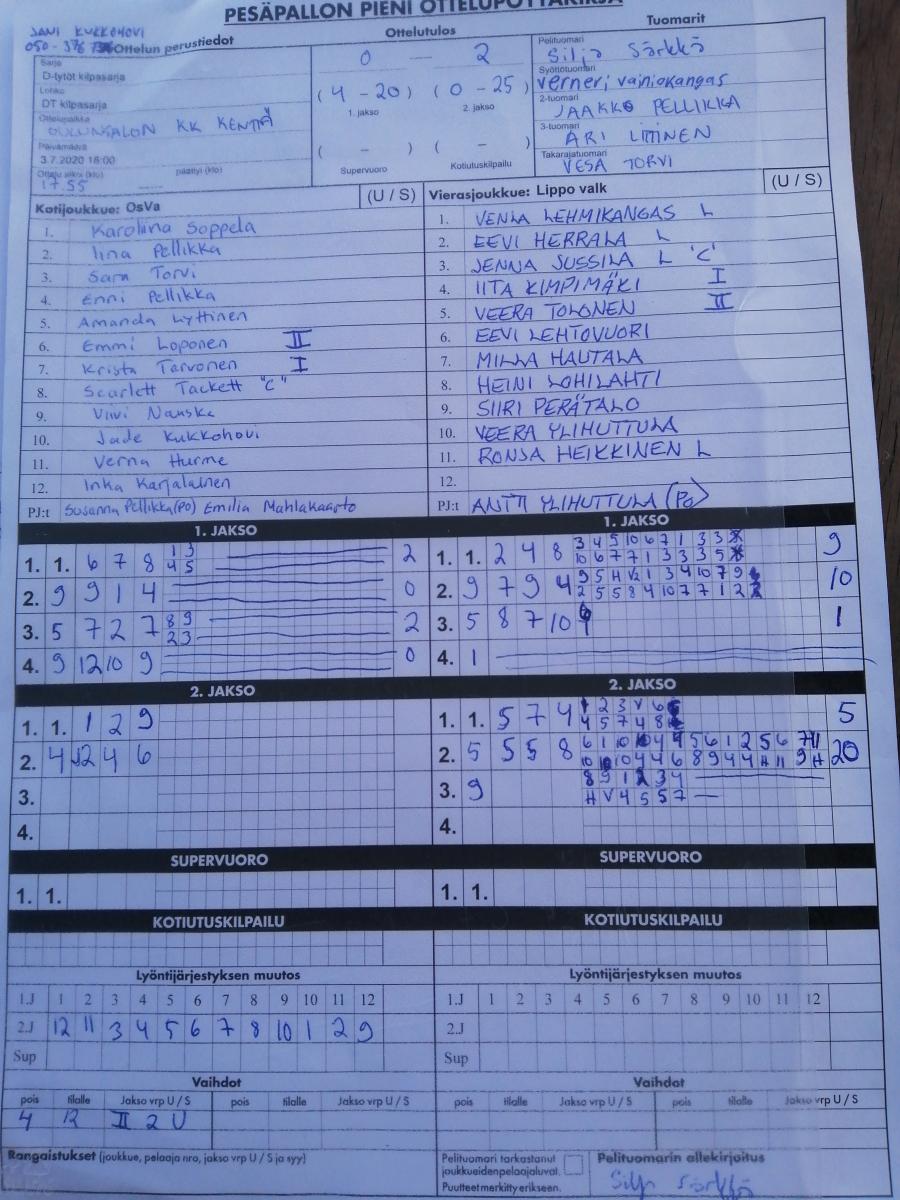 PESÄPALLON PIENI OTTELUPÖYTÄKIRJA
JANI KUKKOHOVI
050-376
Ottelun perustiedot
Sarja
D-tytöt kilpasarja
Lohko
DT kilpasarja
Ottelupaikka
OULUNSALON KK KENTÄ
Päivämäärä
3.7.2020 18:00
Ottelu alkoi (klo)
päättyi (klo)
17.55
Ottelutulos
0 — 2
(4 - 20) (0 - 25)
1. jakso 2. jakso
( - ) ( - )
Supervuoro Kotiutuskilpailu
Tuomarit
Pelituomari
Silja Särkkä
Syöttötuomari
Verneri vainiokangas
2-tuomari
JAAKKO PELLIKKA
3-tuomari
ARI LITINEN
Takarajatuomari
VESA TORVI
Kotijoukkue: OsVa (U / S)
1. Karoliina Soppela
2. Iina Pellikka
3. Sara Torvi
4. Enni Pellikka
5. Amanda Lyttinen
6. Emmi Loponen II
7. Krista Tarvonen I
8. Scarlett Tackett "C"
9. Viivi Nauska
10. Jade Kukkohovi
11. Verna Hurme
12. Inka Karjalainen
PJ:t Susanna Pellikka(PO) Emilia Mahlakaarto
Vierasjoukkue: Lippo valk (U / S)
1. VENLA LEHMIKANGAS L
2. EEVI HERRALA L
3. JENNA JUSSILA L "C"
4. IITA KIMPIMÄKI I
5. VEERA TOLONEN II
6. EEVI LEHTOVUORI
7. MILLA HAUTALA
8. HEINI LOHILAHTI
9. SIIRI PERÄTALO
10. VEERA YLIHUTTULA
11. RONJA HEIKKINEN L
12.
PJ:t ANTTI YLIHUTTULA (PO)
1. JAKSO
1. 1. 6 7 8 1 3 2
4 5
2. 9 9 1 4 0
3. 5 7 2 7 8 9 2
2 3
4. 9 12 10 9 0
2. JAKSO
1. 1. 1 2 9
2. 4 12 4 6
3.
4.
SUPERVUORO
1. 1.
KOTIUTUSKILPAILU
1. JAKSO
1. 1. 2 4 8 3 4 5 10 6 7 1 3 3 9
10 6 7 7 1 3 3 3 5
2. 9 7 9 4 9 5 H V2 1 3 4 10 7 9 10
2 5 5 8 4 10 7 7 1 2
3. 5 8 7 10 1
4. 1
2. JAKSO
1. 1. 5 7 4 2 3 V 6 5
4 5 7 4 8
2. 5 5 5 8 20
3. 9 8 9 1 2 3 4
H V 4 5 5 7
4.
SUPERVUORO
1. 1.
KOTIUTUSKILPAILU
Lyöntijärjestyksen muutos
1.J 1 2 3 4 5 6 7 8 9 10 11 12
2.J 12 11 3 4 5 6 7 8 10 1 2 9
Sup
Vaihdot
pois tilalle Jakso vrp U / S pois tilalle Jakso vrp U / S
4 12 II 2 U
Lyöntijärjestyksen muutos
1.J 1 2 3 4 5 6 7 8 9 10 11 12
2.J
Sup
Vaihdot
pois tilalle Jakso vrp U / S pois tilalle Jakso vrp U / S
Rangaistukset (joukkue, pelaaja nro, jakso vrp U / S ja syy)
Pelituomari tarkastanut
joukkueidenpelaajaluvat.
Puutteet merkitty erikseen.
Pelituomarin allekirjoitus
Silja Särkkä